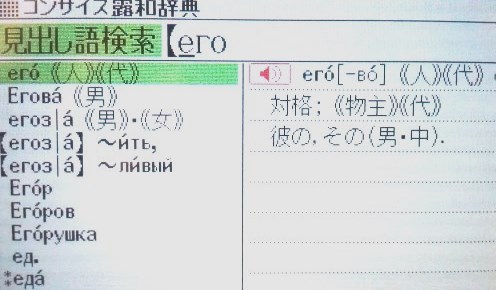 コンサイス露和辞典
見出し語検索【его
его́ 《人》《代》
Егова́ 《男》
егоз|а́ 《男》・《女》
【егоз|а́】 ～и́ть,
【егоз|а́】 ～ли́вый
Его́р
Его́ров
Его́рушка
ед.
⁑еда́
его́[-во́] 《人》《代》
対格; 《物主》《代》
彼の, その(男・中).